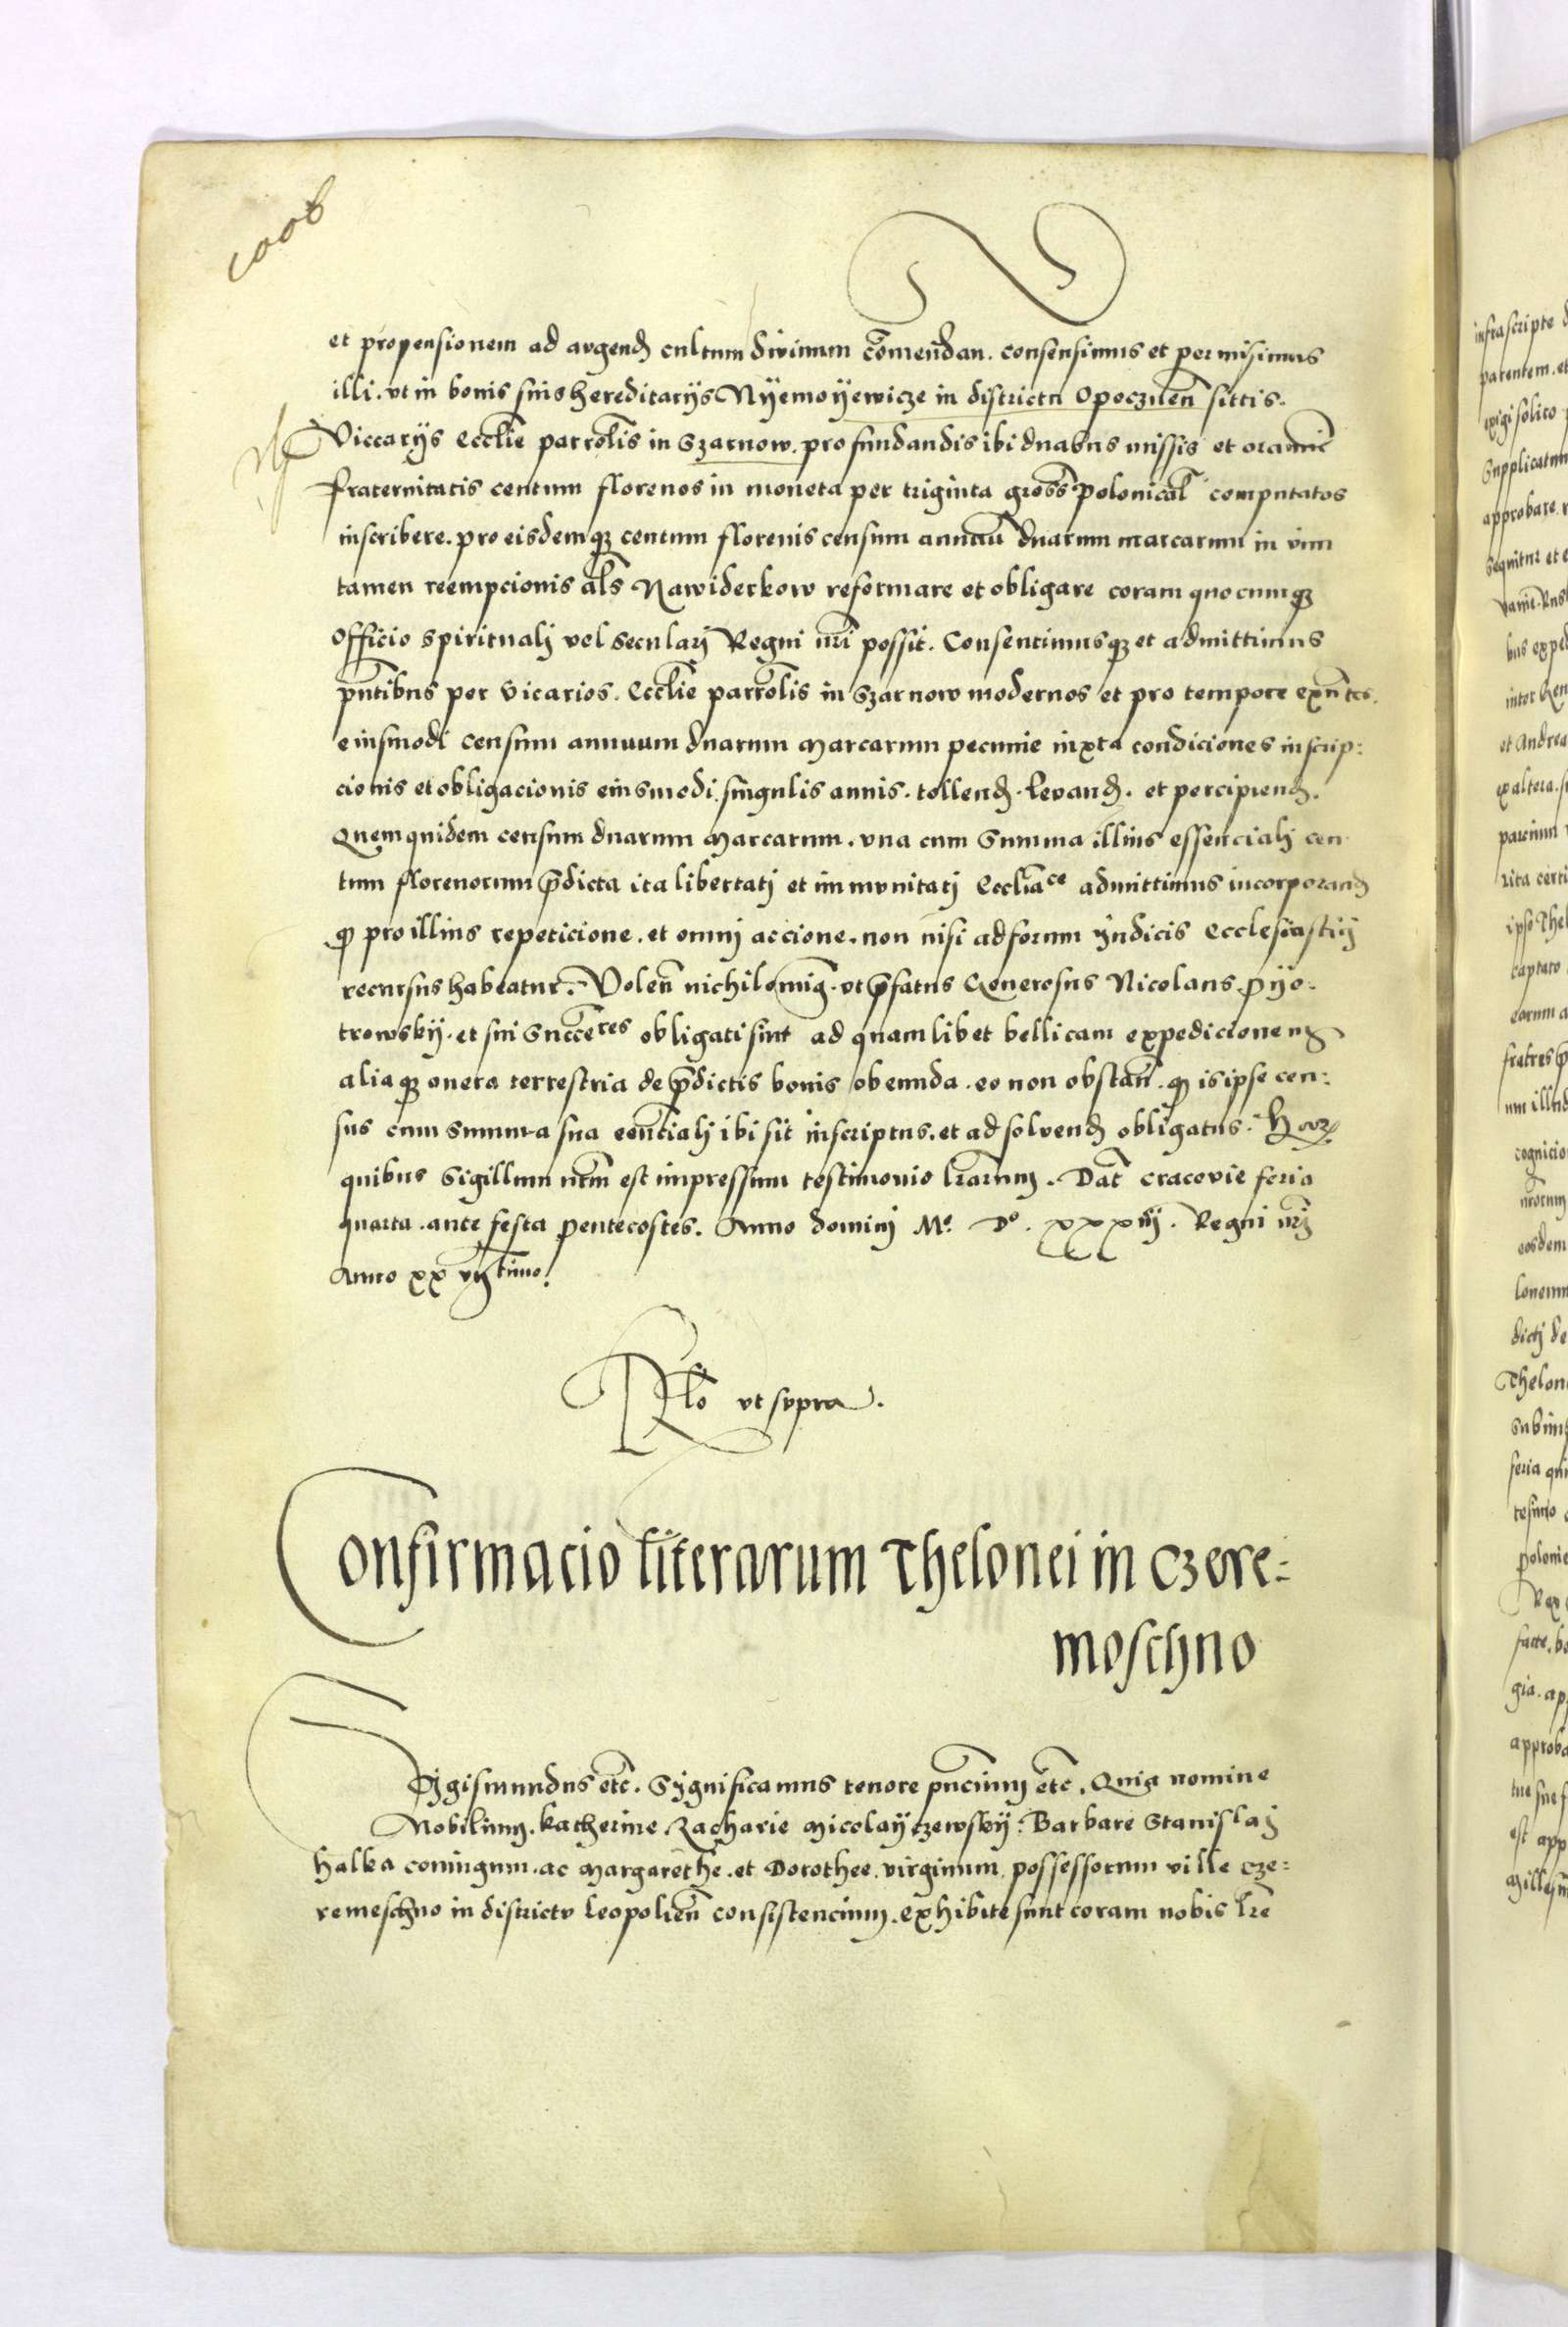 et propensionem ad augend cultum divinum com̄endan. consensimus et permisimus
illi. vt in bonis suis hereditariis Nyemoyewicze in districtu Opoczneñ sittis.
Viccariis eccl̄ie parrol̄is in Szarnow. pro fundandis ibi duabus missis et
fraternitatis centum florenos in moneta per triginta gross̄ polonical̄ computatos
inscribere. pro eisdemq̄ centum florenis censum annuū duarum marcarum in vim
tamen reempcionis al̄s Nawiderkow reformare et obligare coram quocumq̄
officio spirituali vel seculari Regni nr̄i possit. Consentimusq̄ et admittimus
pn̄tibus per vicarios. Eccl̄ie parrol̄is in Szarnow modernos et pro tempore exn̄tes.
eiusmodi censum annuum duarum marcarum pecunie iuxta condiciones inscrip:
cionis et obligacionis eiusmodi. singulis annis. tollend. levand. et percipiend.
Quemquidem censum duarum marcarum. vna cum Summa illius essenciali cen
tum florenorum p̄dicta ita libertati et immunitati eccl̄iace admittimus incorporand
q̄ pro illius repeticione. et omni accione. non nisi ad forum iudicis ecclesiastii
recursus habeatur. Voleñ nichilomiq̄. vt p̄fatus Generosus Nicolaus pyo.
trowsky. et sui succ̄eres obligati sint ad quamlibet bellicam expedicionem
aliaq̄ onera terrestria de p̄dictis bonis obeunda. eo non obstañ. q̄ is ipse cen:
sus cum summa sua eēnciali ibi sit inscriptus. et ad solvend obligatus. Har
quibus Sigillum nr̄m est impressum testimonio lr̄arum. Dat̄ cracovie feria
quarta. ante festa pentecostes. Anno domini Mo. Do. xxxiij. Regni nr̄i
Anno xx vij timo.
Rl̄o vt supra.
Confirmacio literarum Thelonei in Czere:
moschno
Sigismundus etc̄. Significamus tenore pn̄cium etc̄. Quia nomine
Nobilium. katherine. Zacharie Micolayczewsky: Barbare Stanislai
halka coniugum. ac Margarethe. et Dorothee. virginum. possessorum ville cze:
remeschno in districtu leopolieñ consistencium. exhibite sunt coram nobis lr̄e